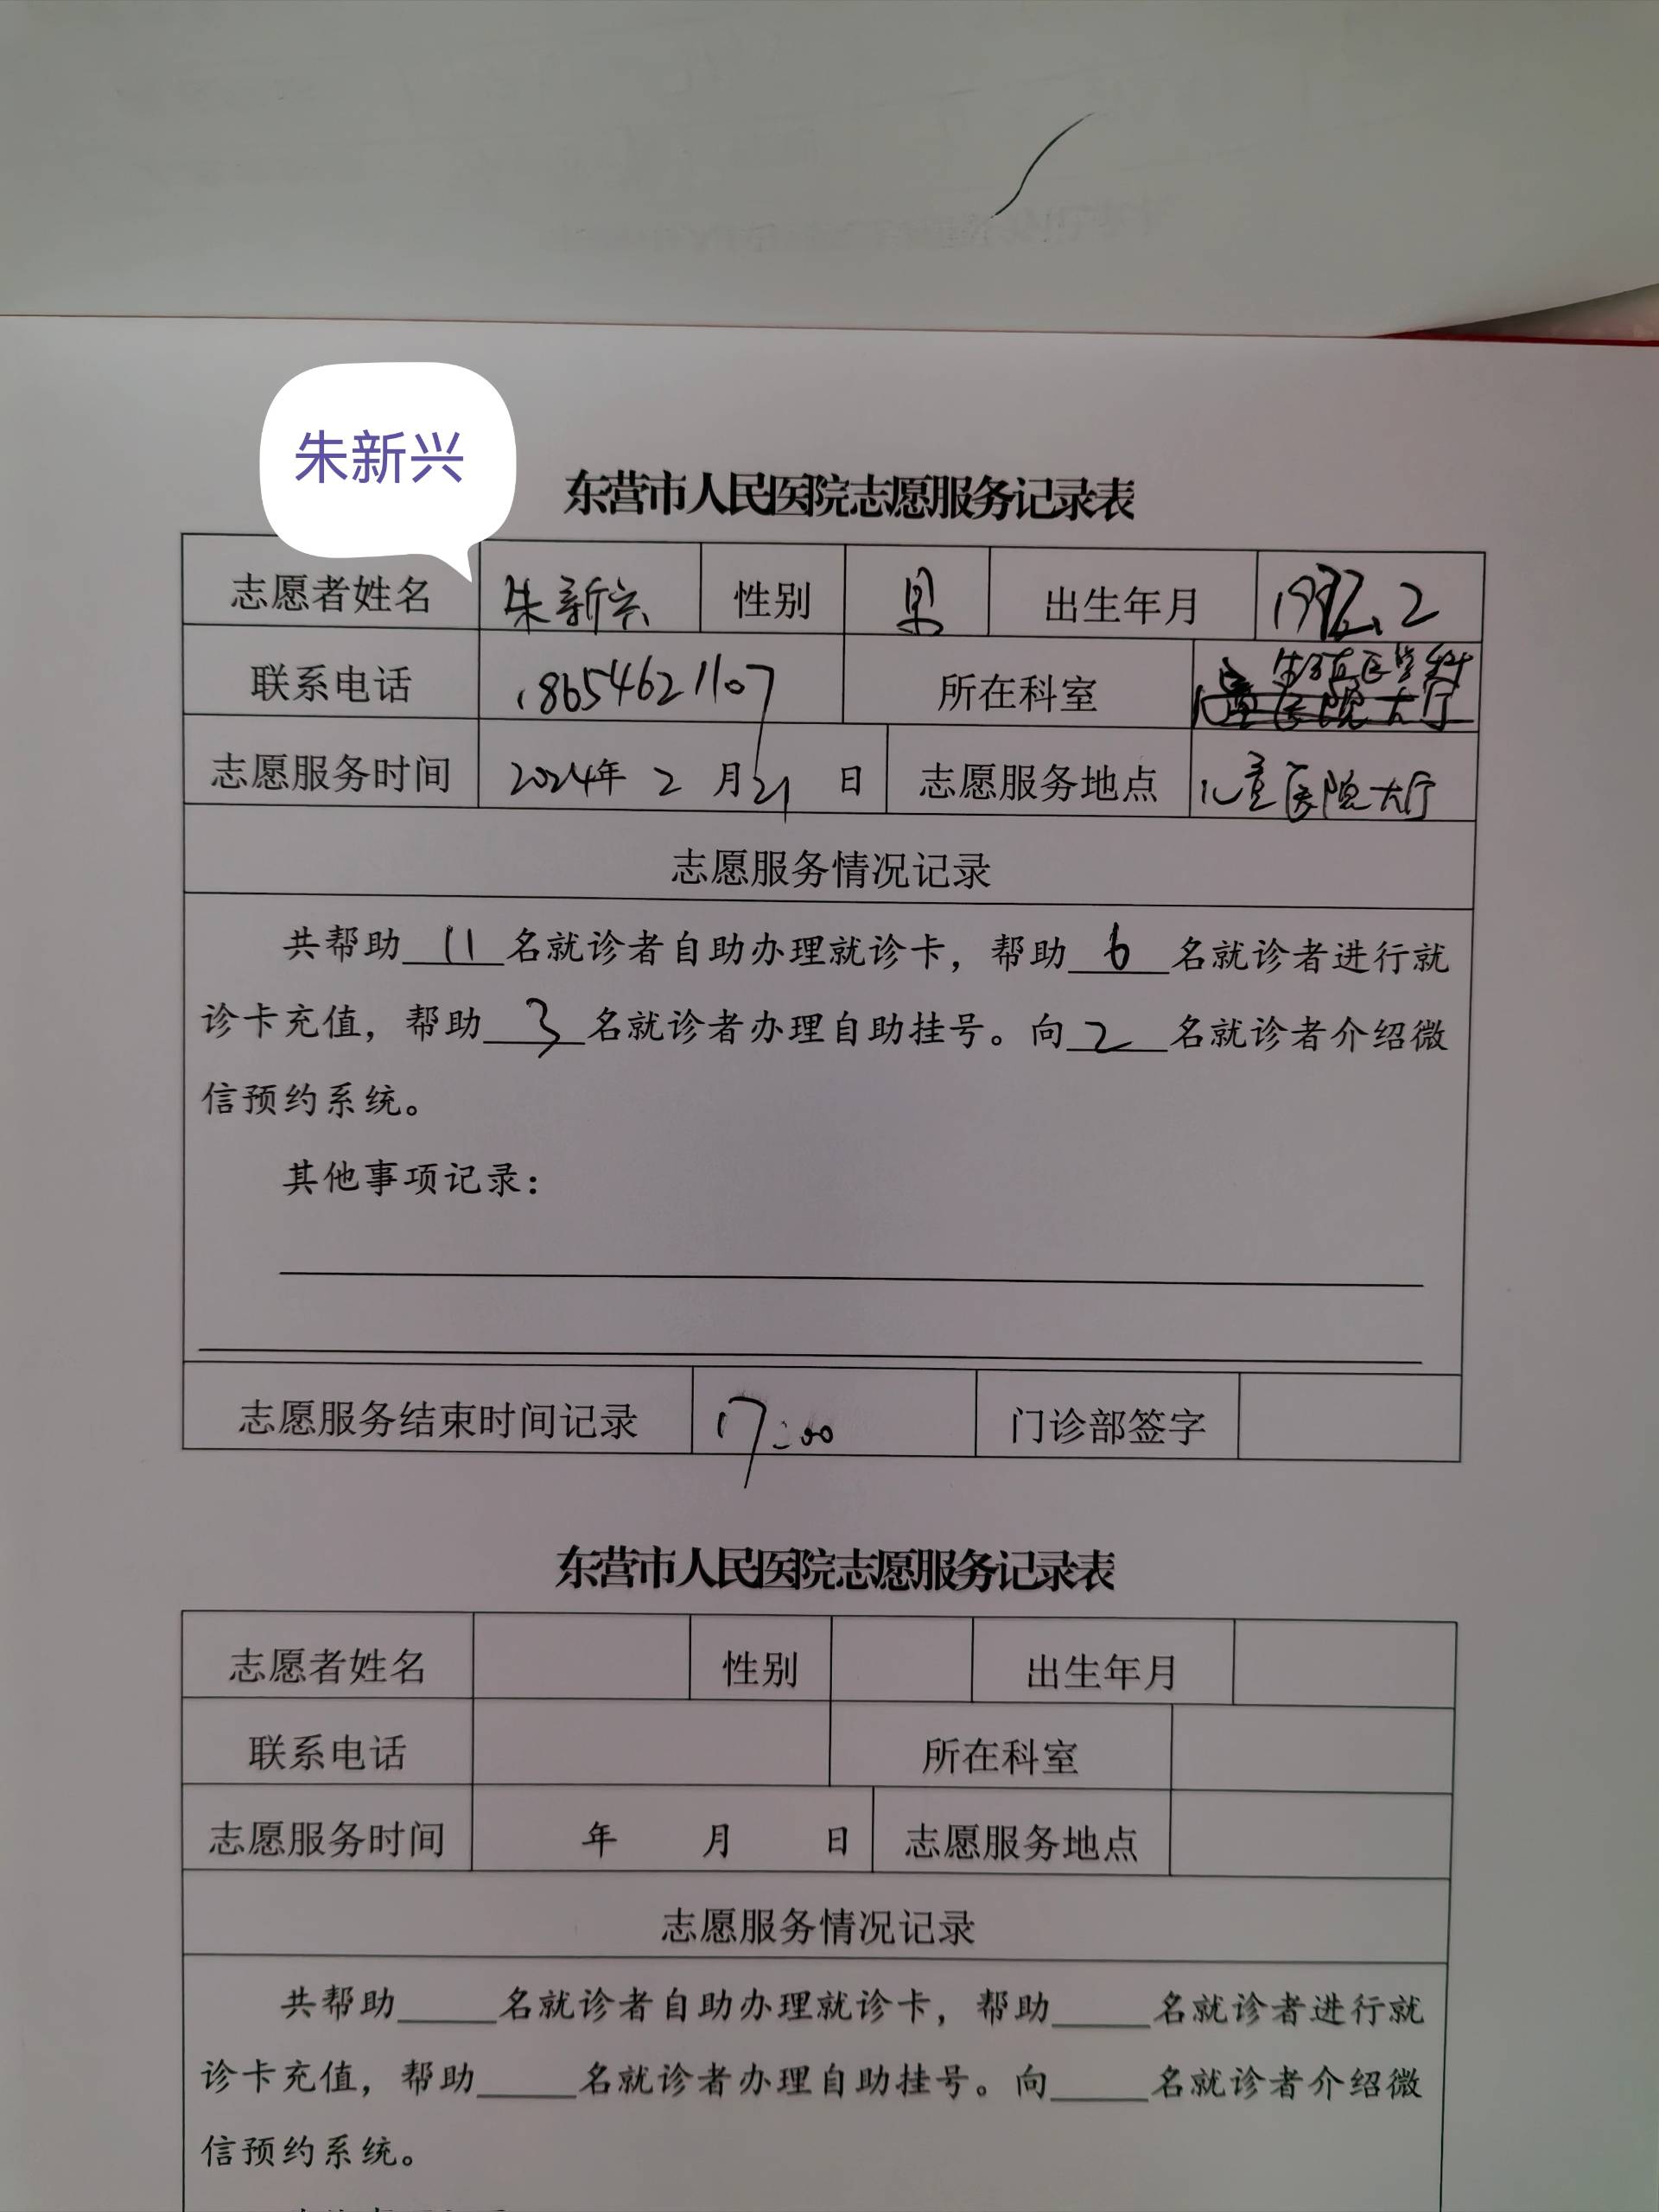 朱新兴
东营市人民医院志愿服务记录表
志愿者姓名 朱新兴 性别 男 出生年月 1992.2
联系电话 18654621107 所在科室 生殖医学科
儿童医院大厅
志愿服务时间 2024年 2 月 21 日 志愿服务地点 儿童医院大厅
志愿服务情况记录
共帮助 11 名就诊者自助办理就诊卡，帮助 6 名就诊者进行就
诊卡充值，帮助 3 名就诊者办理自助挂号。向 2 名就诊者介绍微
信预约系统。
其他事项记录：
志愿服务结束时间记录 17:00 门诊部签字
东营市人民医院志愿服务记录表
志愿者姓名 性别 出生年月
联系电话 所在科室
志愿服务时间 年 月 日 志愿服务地点
志愿服务情况记录
共帮助_____名就诊者自助办理就诊卡，帮助_____名就诊者进行就
诊卡充值，帮助_____名就诊者办理自助挂号。向_____名就诊者介绍微
信预约系统。